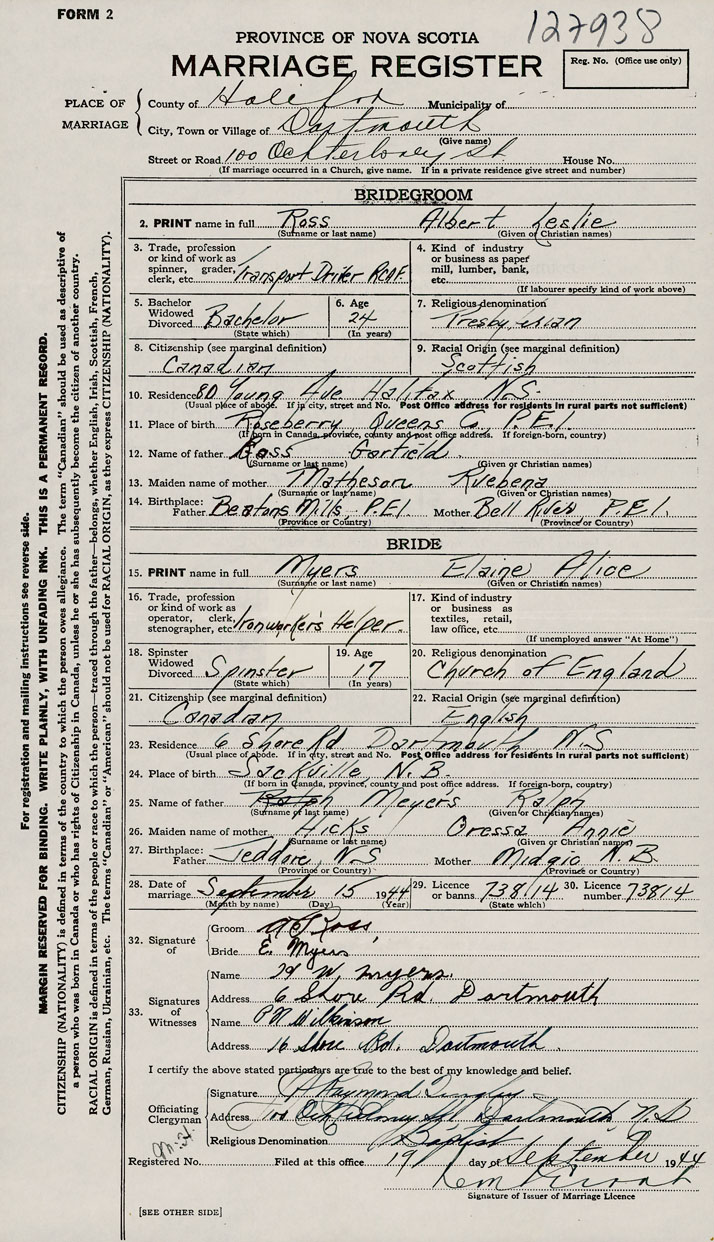 FORM 2
127938
PROVINCE OF NOVA SCOTIA
MARRIAGE REGISTER
Reg. No. (Office use only)
PLACE OF MARRIAGE
County of Halifax Municipality of
City, Town or Village of Dartmouth
(Give name)
Street or Road 100 Ochterloney St House No.
(If marriage occurred in a Church, give name. If in a private residence give street and number)
BRIDEGROOM
2. PRINT name in full Ross Albert Leslie
(Surname or last name) (Given or Christian names)
3. Trade, profession or kind of work as spinner, grader, clerk, etc. Transport Driver RCAF
4. Kind of industry or business as paper mill, lumber, bank, etc.
(If labourer specify kind of work above)
5. Bachelor Widowed Divorced Bachelor
(State which)
6. Age 24
(In years)
7. Religious denomination Presbyterian
8. Citizenship (see marginal definition) Canadian
9. Racial Origin (see marginal definition) Scottish
10. Residence 80 Young Ave Halifax N.S.
(Usual place of abode. If in city, street and No. Post Office address for residents in rural parts not sufficient)
11. Place of birth Roseberry, Queens Co, P.E.I.
(If born in Canada, province, county and post office address. If foreign-born, country)
12. Name of father Ross Garfield
(Surname or last name) (Given or Christian names)
13. Maiden name of mother Matheson Ruebena
(Surname or last name) (Given or Christian names)
14. Birthplace: Father Beatons Mills, P.E.I. Mother Bell River, P.E.I.
(Province or Country) (Province or Country)
BRIDE
15. PRINT name in full Myers Elaine Alice
(Surname or last name) (Given or Christian names)
16. Trade, profession or kind of work as operator, clerk, stenographer, etc. Ironworker's Helper.
17. Kind of industry or business as textiles, retail, law office, etc.
(If unemployed answer "At Home")
18. Spinster Widowed Divorced Spinster
(State which)
19. Age 17
(In years)
20. Religious denomination Church of England
21. Citizenship (see marginal definition) Canadian
22. Racial Origin (see marginal definition) English
23. Residence 6 Shore Rd Dartmouth N.S
(Usual place of abode. If in city, street and No. Post Office address for residents in rural parts not sufficient)
24. Place of birth Sackville, N.B.
(If born in Canada, province, county and post office address. If foreign-born, country)
25. Name of father Ralph Meyers Ralph
(Surname or last name) (Given or Christian names)
26. Maiden name of mother Hicks Oressa Annie
(Surname or last name) (Given or Christian names)
27. Birthplace: Father Jeddore, N.S Mother Midgic N.B.
(Province or Country) (Province or Country)
28. Date of marriage September 15 1944
(Month by name) (Day) (Year)
29. Licence or banns 73814
(State which)
30. Licence number 73814
32. Signature of
Groom A L Ross
Bride E. Myers
33. Signatures of Witnesses
Name W. Myers.
Address 6 Shore Rd. Dartmouth
Name Wilkinson
Address 16 Shore Rd. Dartmouth.
I certify the above stated particulars are true to the best of my knowledge and belief.
Officiating Clergyman
Signature Raymond
Address 100 Ochterloney St, Dartmouth, N.S
Religious Denomination Baptist
Registered No. Filed at this office 19 day of September 1944
Signature of Issuer of Marriage Licence
[SEE OTHER SIDE]
For registration and mailing instructions see reverse side.
MARGIN RESERVED FOR BINDING. WRITE PLAINLY, WITH UNFADING INK. THIS IS A PERMANENT RECORD.
CITIZENSHIP (NATIONALITY) is defined in terms of the country to which the person owes allegiance. The term "Canadian" should be used as descriptive of
a person who was born in Canada or who has rights of Citizenship in Canada, unless he or she has subsequently become the citizen of another country.
RACIAL ORIGIN is defined in terms of the people or race to which the person—traced through the father—belongs, whether English, Irish, Scottish, French,
German, Russian, Ukrainian, etc. The terms "Canadian" or "American" should not be used for RACIAL ORIGIN, as they express CITIZENSHIP (NATIONALITY).